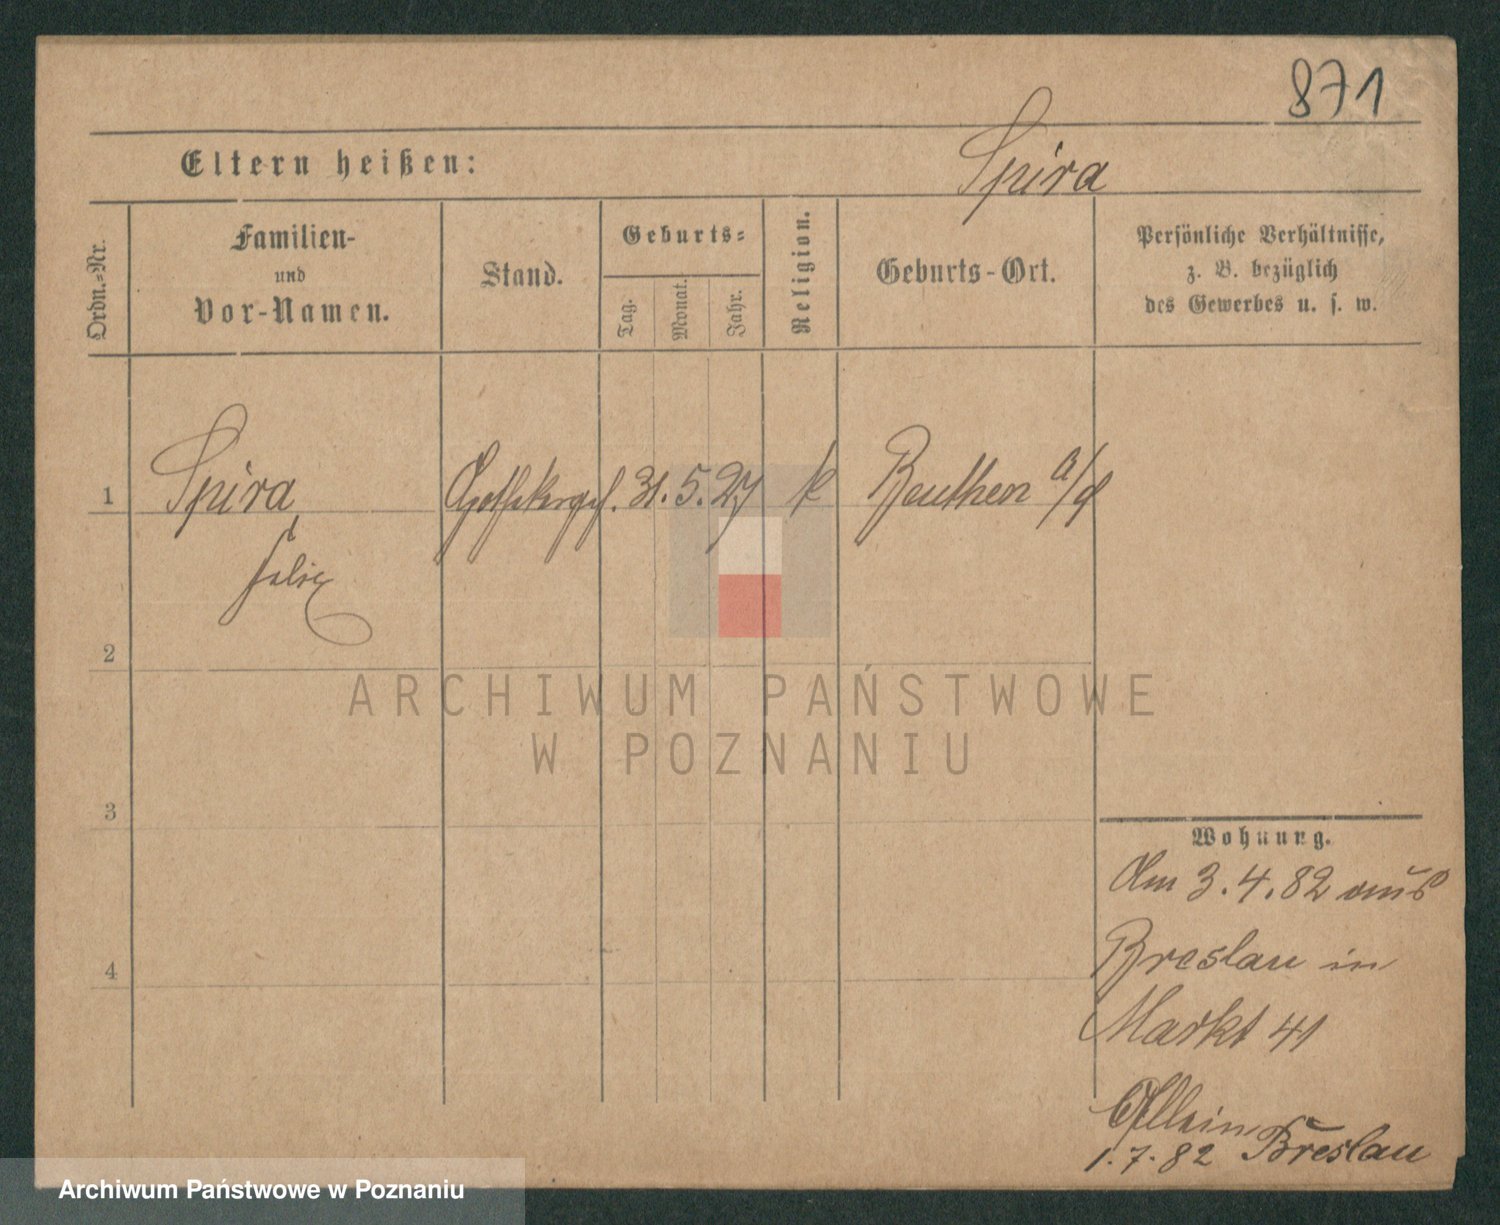 871
Spira
Eltern heißen:
Ordn.-Nr.
Familien-
und
Vor-Namen.
Stand.
Geburts-
Tag.
Monat.
Jahr.
Religion.
Geburts-Ort.
Persönliche Verhältnisse,
z. B. bezüglich
des Gewerbes u. s. w.
1
Spira
Felix
31. 5. 27
k
Beuthen a/O
2
ARCHIWUM PAŃSTWOWE
W POZNANIU
3
Wohnung.
Am 3.4.82 aus
Breslau in
Markt 41
4
Allein
1.7.82 Breslau
Archiwum Państwowe w Poznaniu